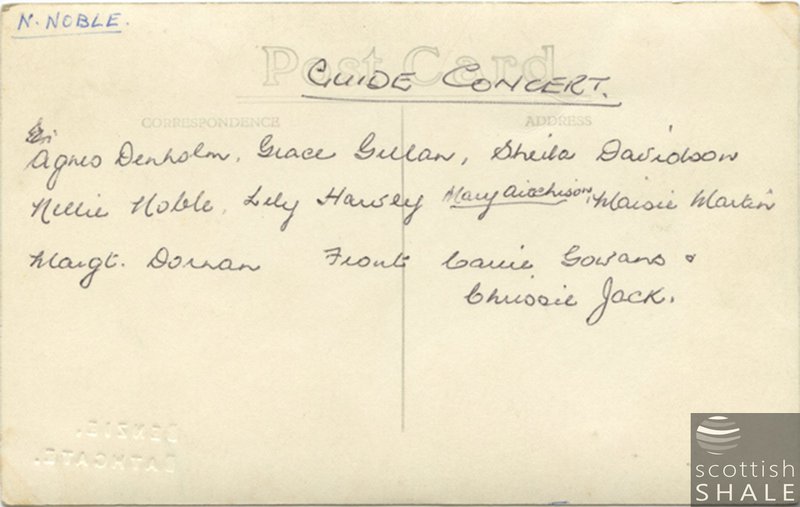 N. NOBLE.
Post Card
GUIDE CONCERT.
CORRESPONDENCE
ADDRESS
Agnes Denholm, Grace Gillan, Sheila Davidson
Nellie Noble, Lily Harvey Mary Aitchison, Maisie Martin
Margt. Dornan Front Carrie Gowans &
Chrissie Jack.
BENZIE.
BATHGATE.
scottish
SHALE